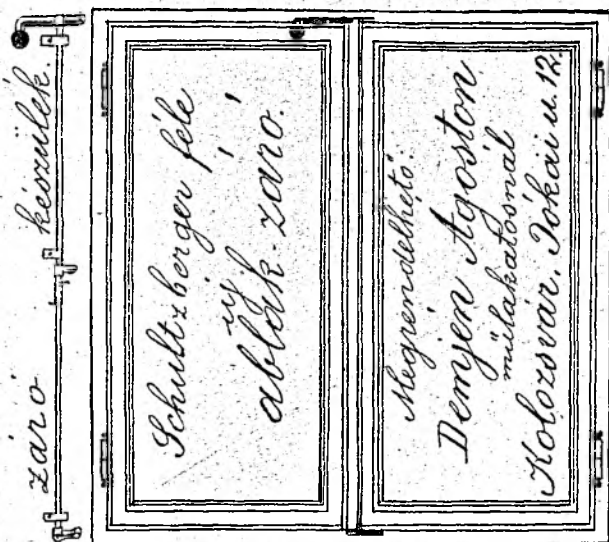 záró készülék.
Schultzberger féle
új
ablak-záró.
Megrendelhető:
Demjén Ágoston
műlakatosnál
Kolozsvár, Jokai u. 12.